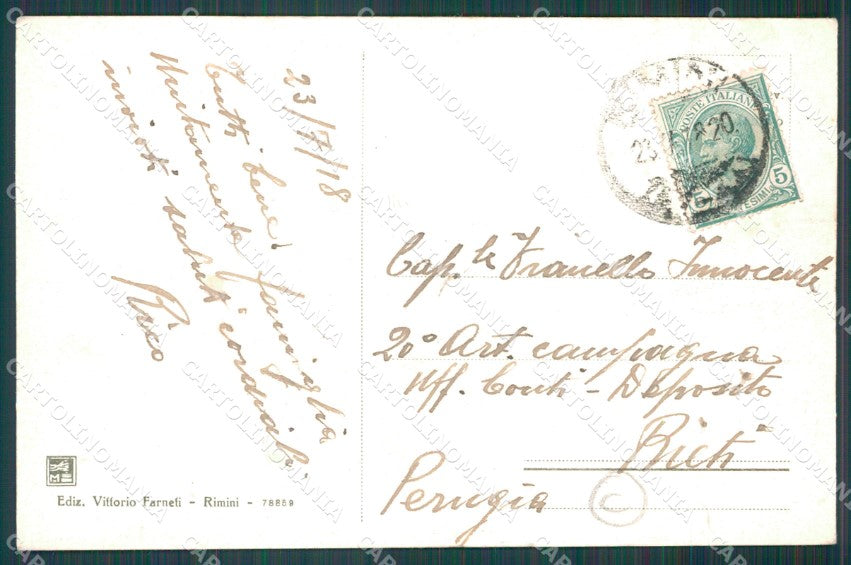 23/7/18
Tutti bene.
Unitamente famiglia
inviati saluti cordiali.
Rico
POSTE ITALIANE
5 5
CENTESIMI
Cap.le Franello Innocente
20° Art. campagna
Uff. Conti - Deposito
Rieti
Perugia
C
Ediz. Vittorio Farneti - Rimini - 78869
CARTOLINOMANIA